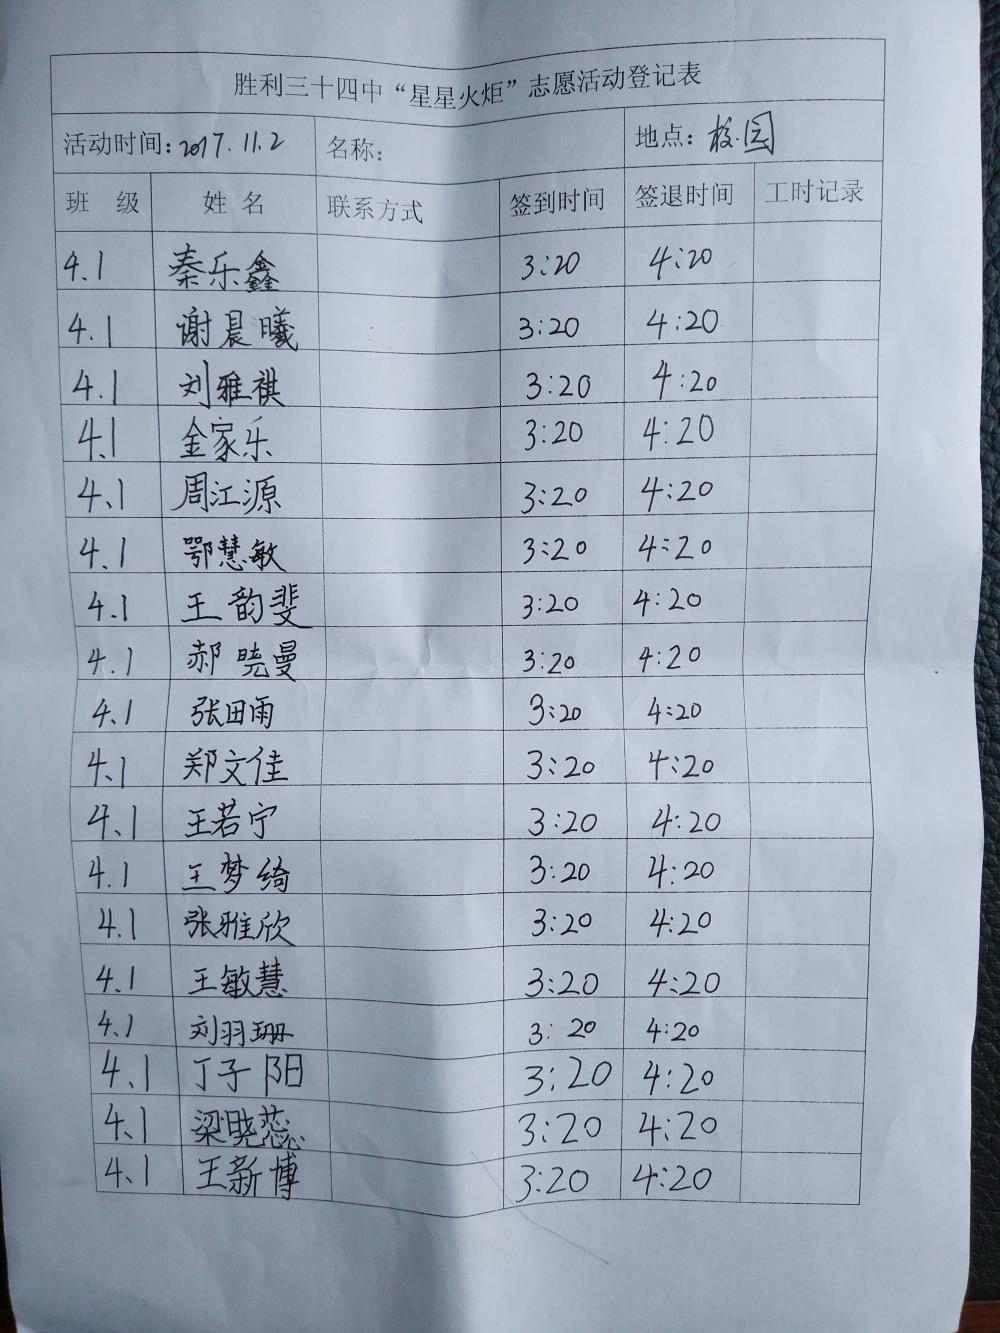 胜利三十四中“星星火炬”志愿活动登记表
活动时间：2017.11.2 名称： 地点：校园
班 级 姓 名 联系方式 签到时间 签退时间 工时记录
4.1 秦乐鑫 3:20 4:20
4.1 谢晨曦 3:20 4:20
4.1 刘雅祺 3:20 4:20
4.1 金家乐 3:20 4:20
4、1 周江源 3:20 4:20
4、1 鄂慧敏 3:20 4:20
4.1 王韵斐 3:20 4:20
4.1 郝晓曼 3:20 4:20
4.1 张田雨 3:20 4:20
4、1 郑文佳 3:20 4:20
4、1 王若宁 3:20 4:20
4.1 王梦绮 3:20 4:20
4.1 张雅欣 3:20 4:20
4.1 王敏慧 3:20 4:20
4.1 刘羽珊 3:20 4:20
4、1 丁子阳 3:20 4:20
4、1 梁晓蕊 3:20 4:20
4.1 王新博 3:20 4:20